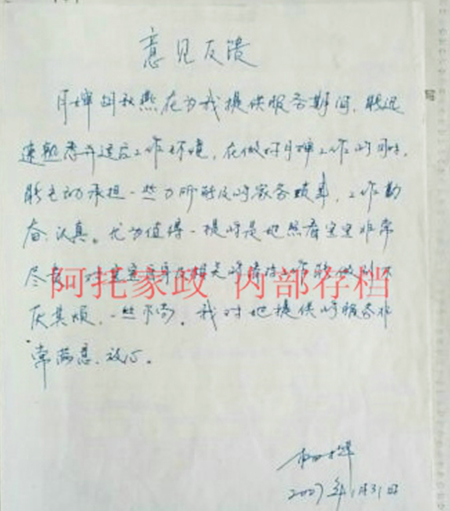 意见反馈
月嫂胡秋燕在为我提供服务期间,能迅
速熟悉并适应工作环境,在做好月嫂工作的同时,
能主动承担一些力所能及的家务琐事,工作勤
奋、认真。尤为值得一提的是她照看宝宝非常
尽责,对宝宝
阿托家政 内部存档
厌其烦,一丝不苟。我对她提供的服务非
常满意、放心。
2007年1月31日